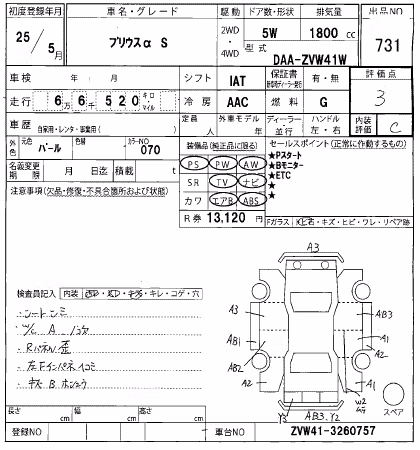 初度登録年月 車名・グレード 駆動 ドア数・形状 排気量 出品NO
25/5月 プリウスα S 2WD・4WD 5W 1800cc 731
型式 DAA-ZVW41W
車検 年 月 シフト IAT 保証書 有・無 評価点
走行 6万6千520キロ・マイル 冷房 AAC 燃料 G 3
車歴 自家用・レンタ・事業用( ) 定員 人 外車モデル 年 ディーラー・並行 ハンドル 左・右 内装評価 C
外色 元色 パール 色替 カラーNO 070 装備品(純正品に限る) セールスポイント(正常に作動するもの)
名義変更期限 月 日迄 積載 t PS PW AW ★Pスタート
注意事項(欠品・修復・不具合箇所および状態) SR TV ナビ ★Bモニター
★ETC
カワ エアB ABS ★
★
R券 13,120円 Fガラス 石・キズ・ヒビ・ワレ・リペア跡
検査員記入 内装 キレ・コゲ・穴
A3
A3 A3
AB1 AB3
A1
A2
AB2
A2 A1
W2
Y3 AB3.Y2
スペア
シートシミ
Rパネル歪
左Fインパネ凹コミ
長さ cm 幅 cm 高さ cm
登録NO 車台NO ZVW41-3260757